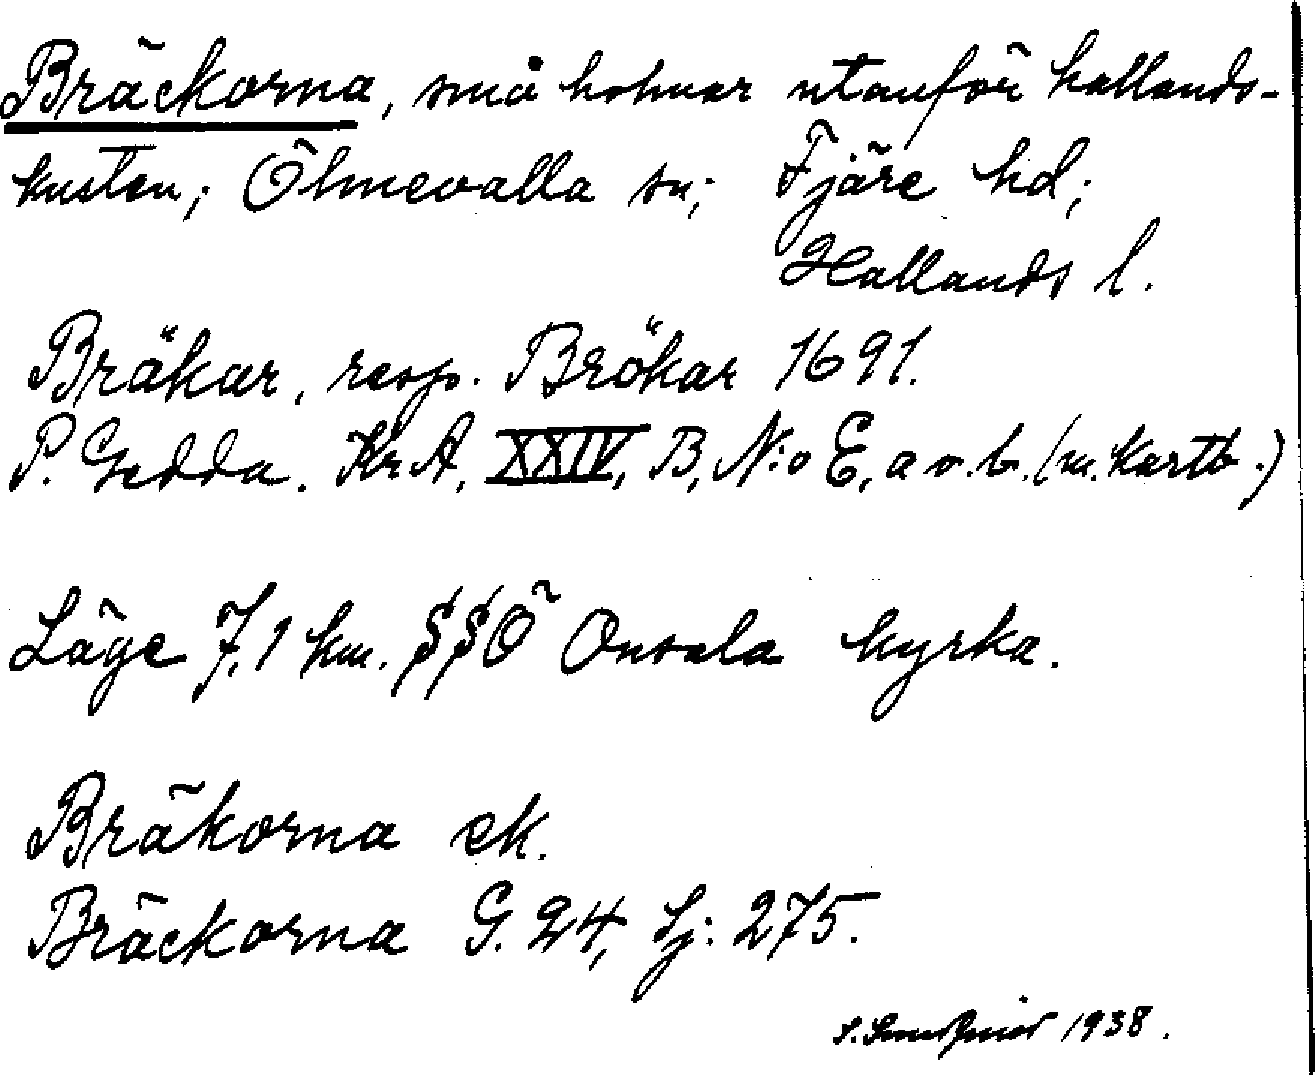 Bräckorna, små holmar utanför hallands-
kusten; Ölmevalla sn; Fjäre hd;
Hallands l.
Bräkar, resp. Brökar 1691.
P. Gedda. Kr.A, XXIV, B, N:o E, a o. b. (m. kartb.)
Läge 7,1 km. SSÖ Onsala kyrka.
Bräkorna ek.
Bräckorna G. 24, Sj: 275.
1938.